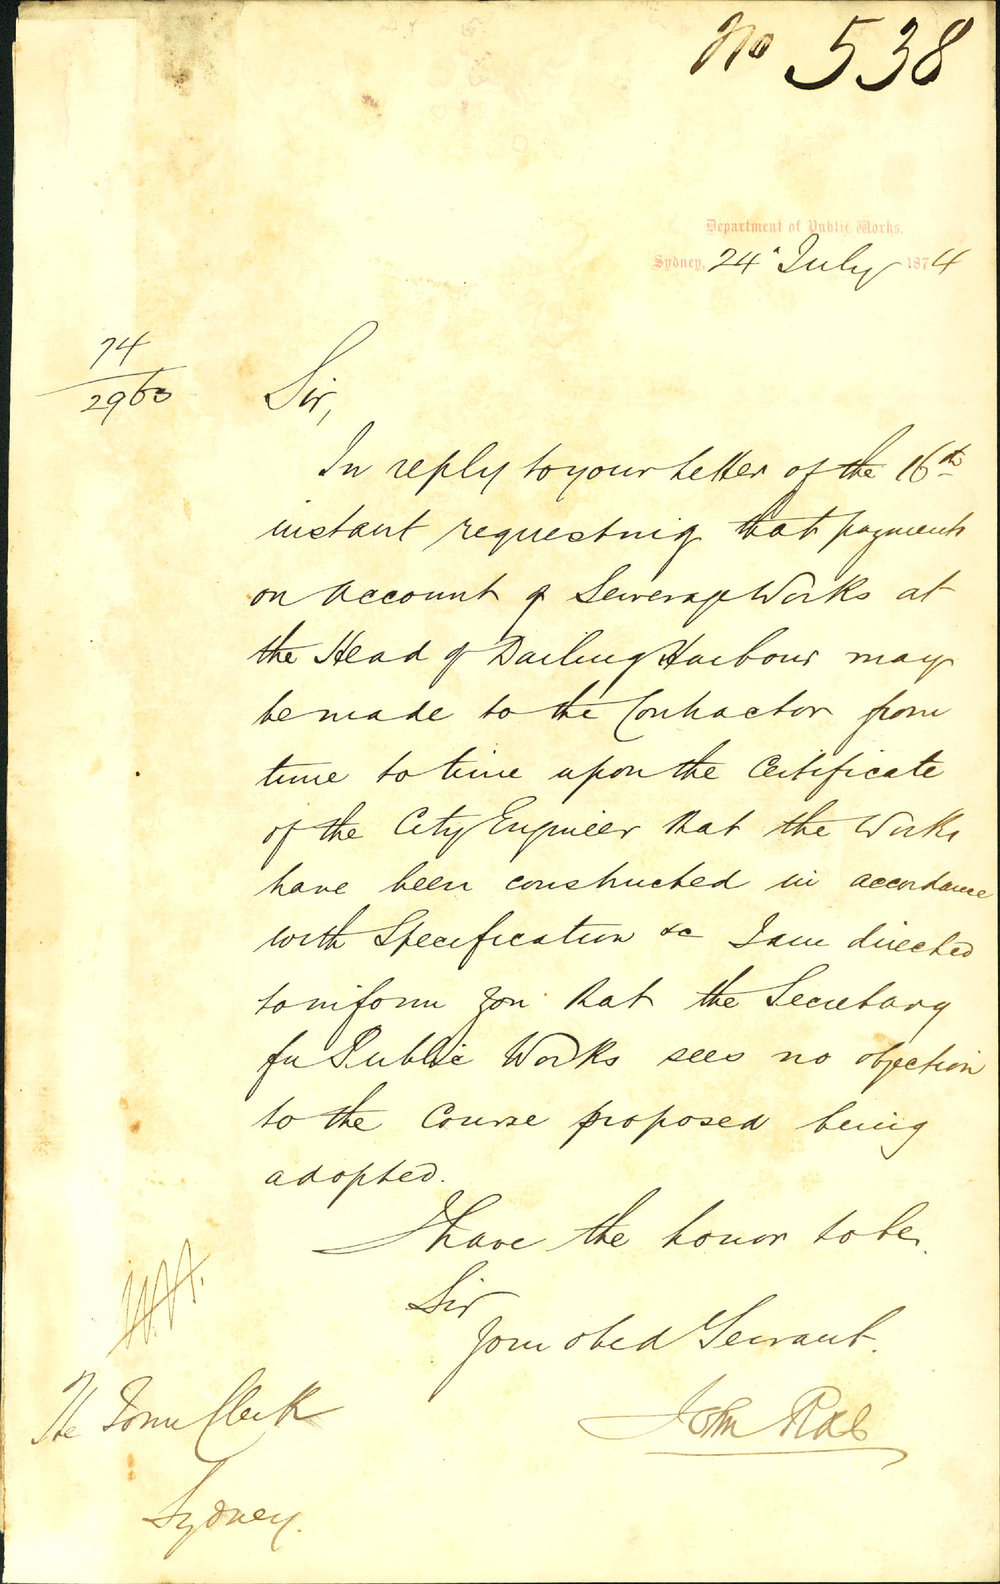 No 538
Department of Public Works.
Sydney, 24 July 1874
74
2960
Sir,
In reply to your letter of the 16th
instant requesting that payments
on account of Sewerage Works at
the Head of Darling Harbour may
be made to the Contractor from
time to time upon the Certificate
of the City Engineer that the Works
have been constructed in accordance
with Specification &c I am directed
to inform you that the Secretary
for Public Works sees no objection
to the Course proposed being
adopted.
I have the honor to be,
Sir
Your obed Servant.
John Rae
The Town Clerk
Sydney.